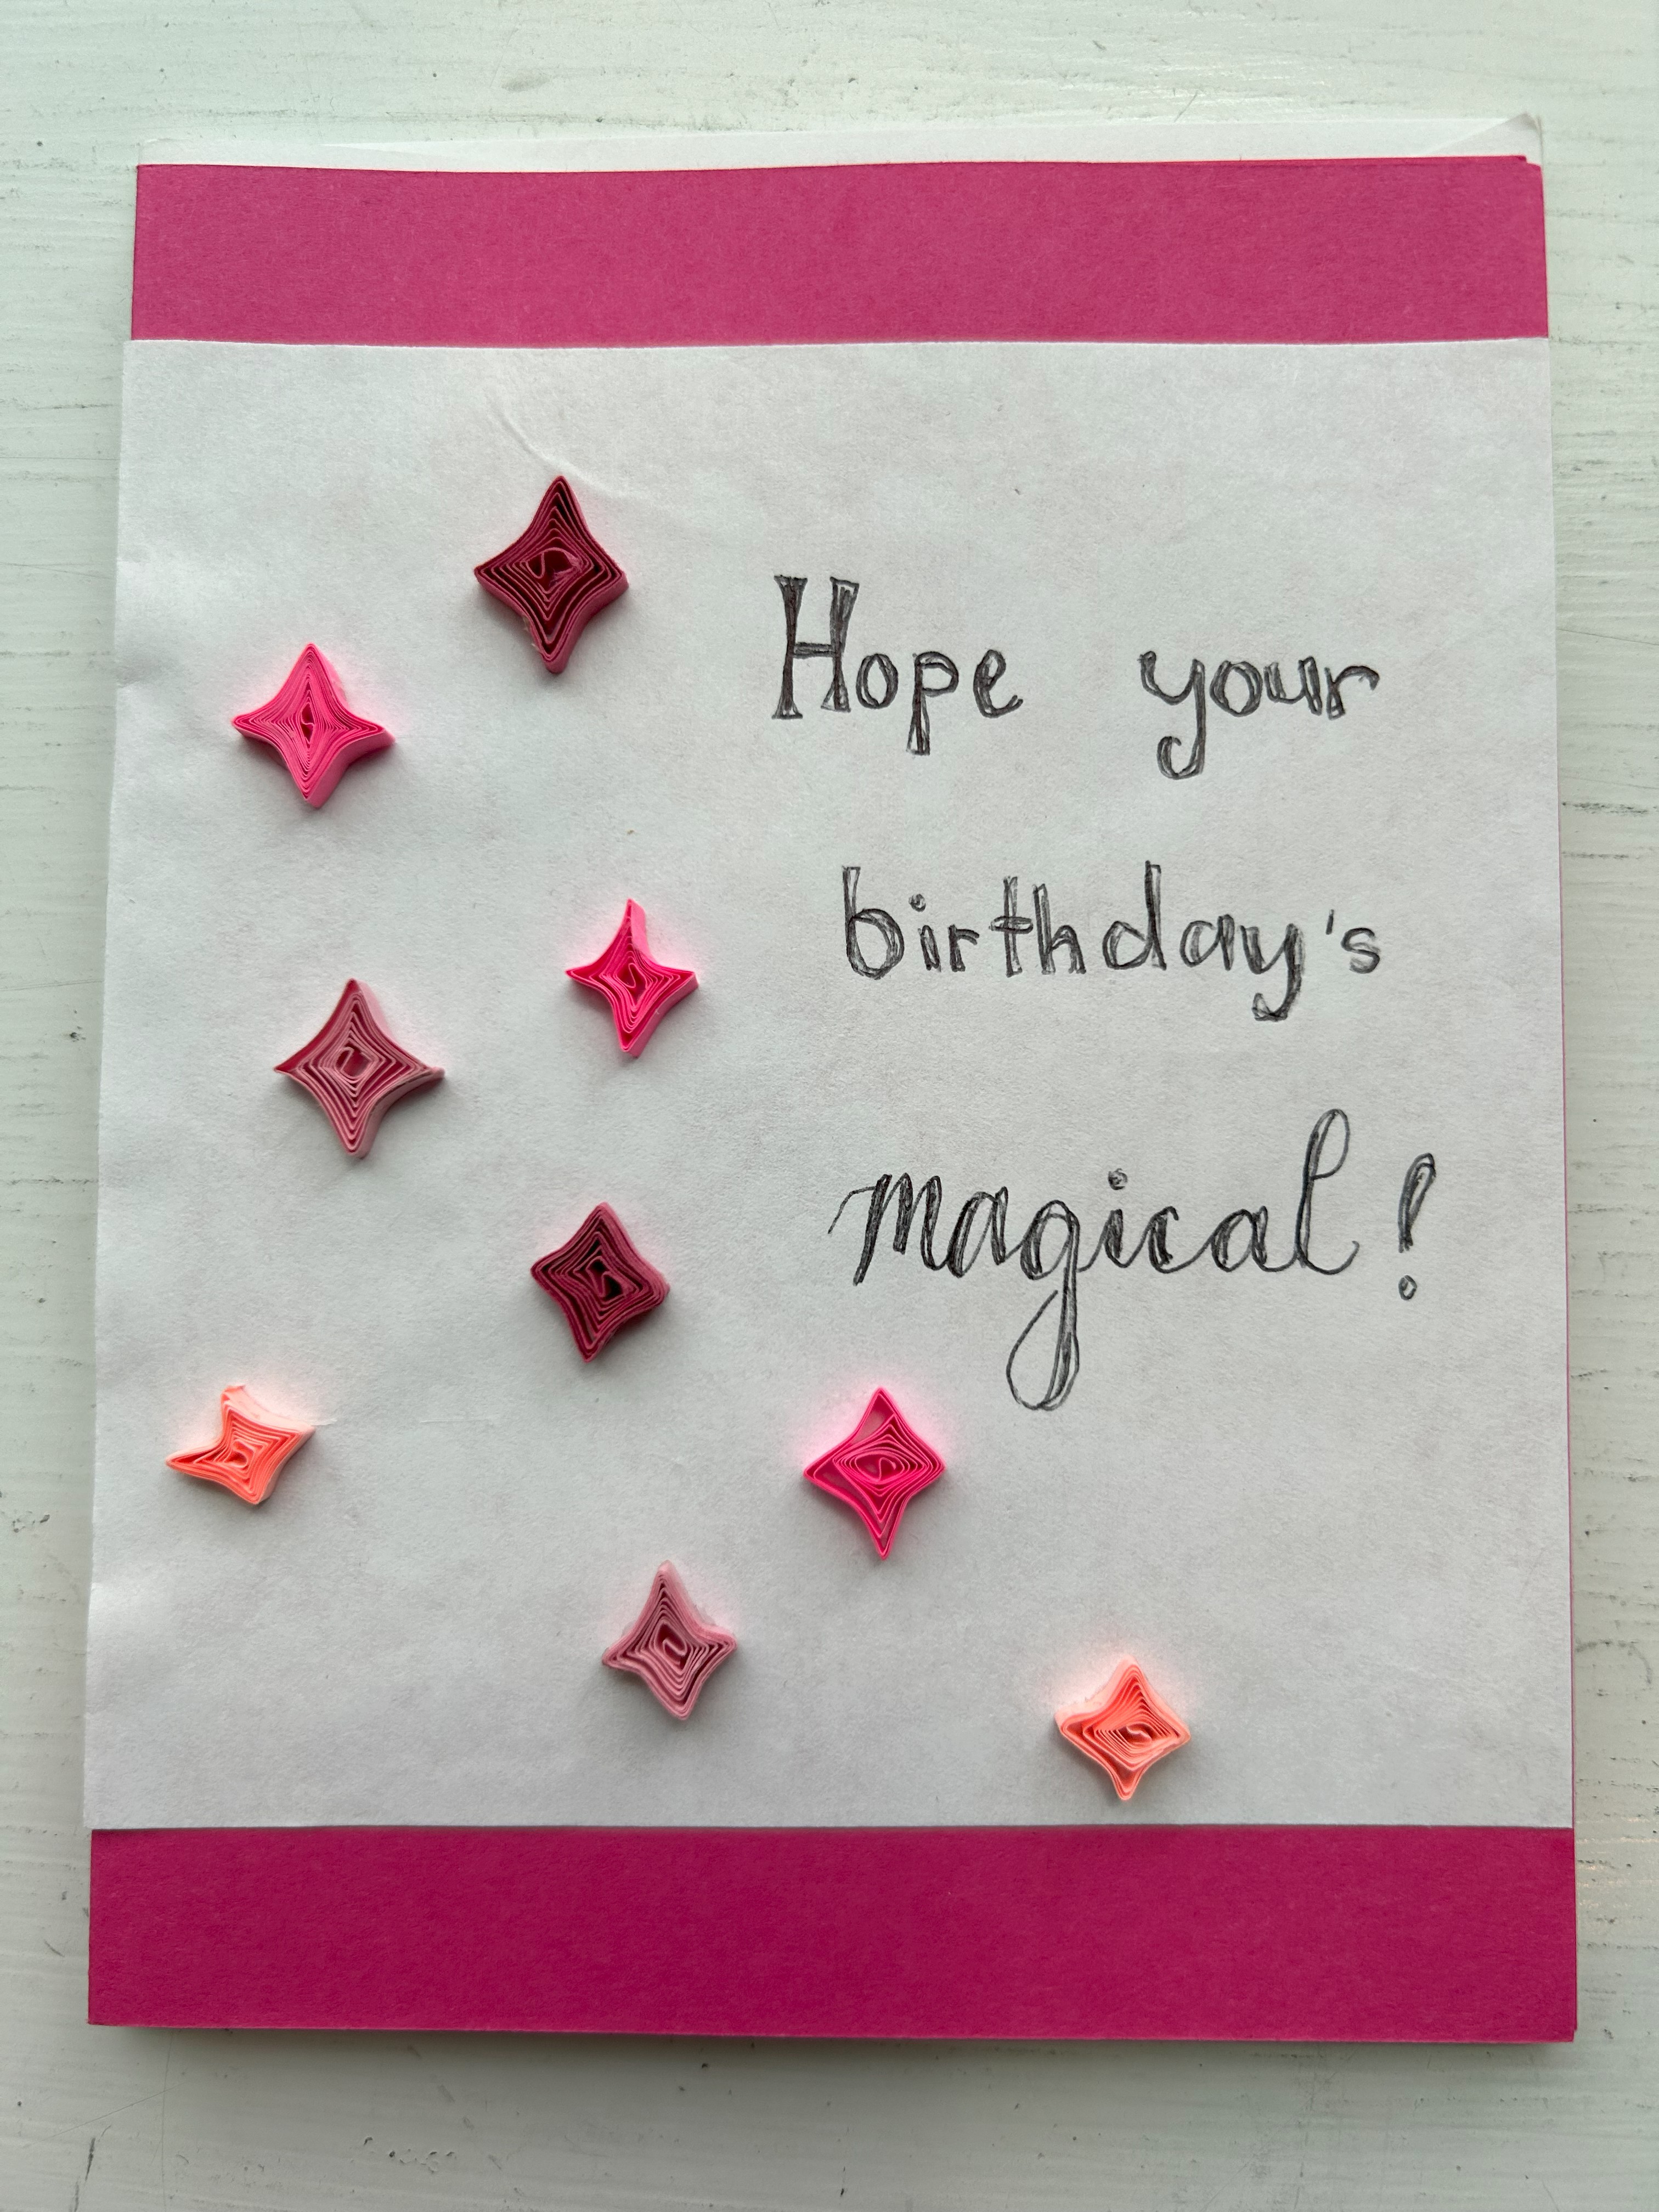 Hope your
birthday's
magical!